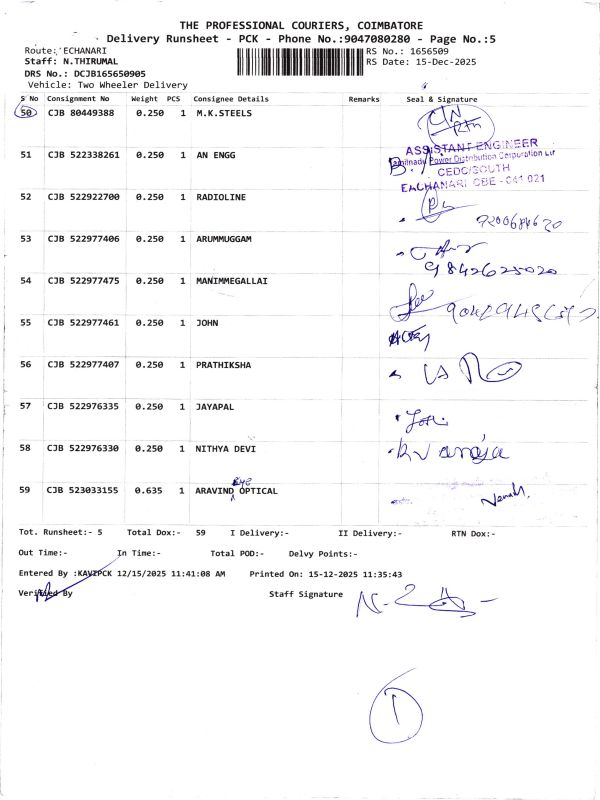 THE PROFESSIONAL COURIERS, COIMBATORE
Delivery Runsheet - PCK - Phone No.:9047080280 - Page No.:5
Route: ECHANARI RS No.: 1656509
Staff: N.THIRUMAL RS Date: 15-Dec-2025
DRS No.: DCJB165650905
Vehicle: Two Wheeler Delivery
S No Consignment No Weight PCS Consignee Details Remarks Seal & Signature
50 CJB 80449388 0.250 1 M.K.STEELS
ASSISTANT ENGINEER
Tamilnadu Power Distribution Corporation Ltd
CEDC/SOUTH
EACHANARI, CBE - 641 021
51 CJB 522338261 0.250 1 AN ENGG
52 CJB 522922700 0.250 1 RADIOLINE
53 CJB 522977406 0.250 1 ARUMMUGGAM
9842625020
54 CJB 522977475 0.250 1 MANIMMEGALLAI
55 CJB 522977461 0.250 1 JOHN
56 CJB 522977407 0.250 1 PRATHIKSHA
57 CJB 522976335 0.250 1 JAYAPAL
58 CJB 522976330 0.250 1 NITHYA DEVI
59 CJB 523033155 0.635 1 ARAVIND eye OPTICAL
Tot. Runsheet:- 5 Total Dox:- 59 I Delivery:- II Delivery:- RTN Dox:-
Out Time:- In Time:- Total POD:- Delvy Points:-
Entered By :KAVIPCK 12/15/2025 11:41:08 AM Printed On: 15-12-2025 11:35:43
Verified By Staff Signature
1